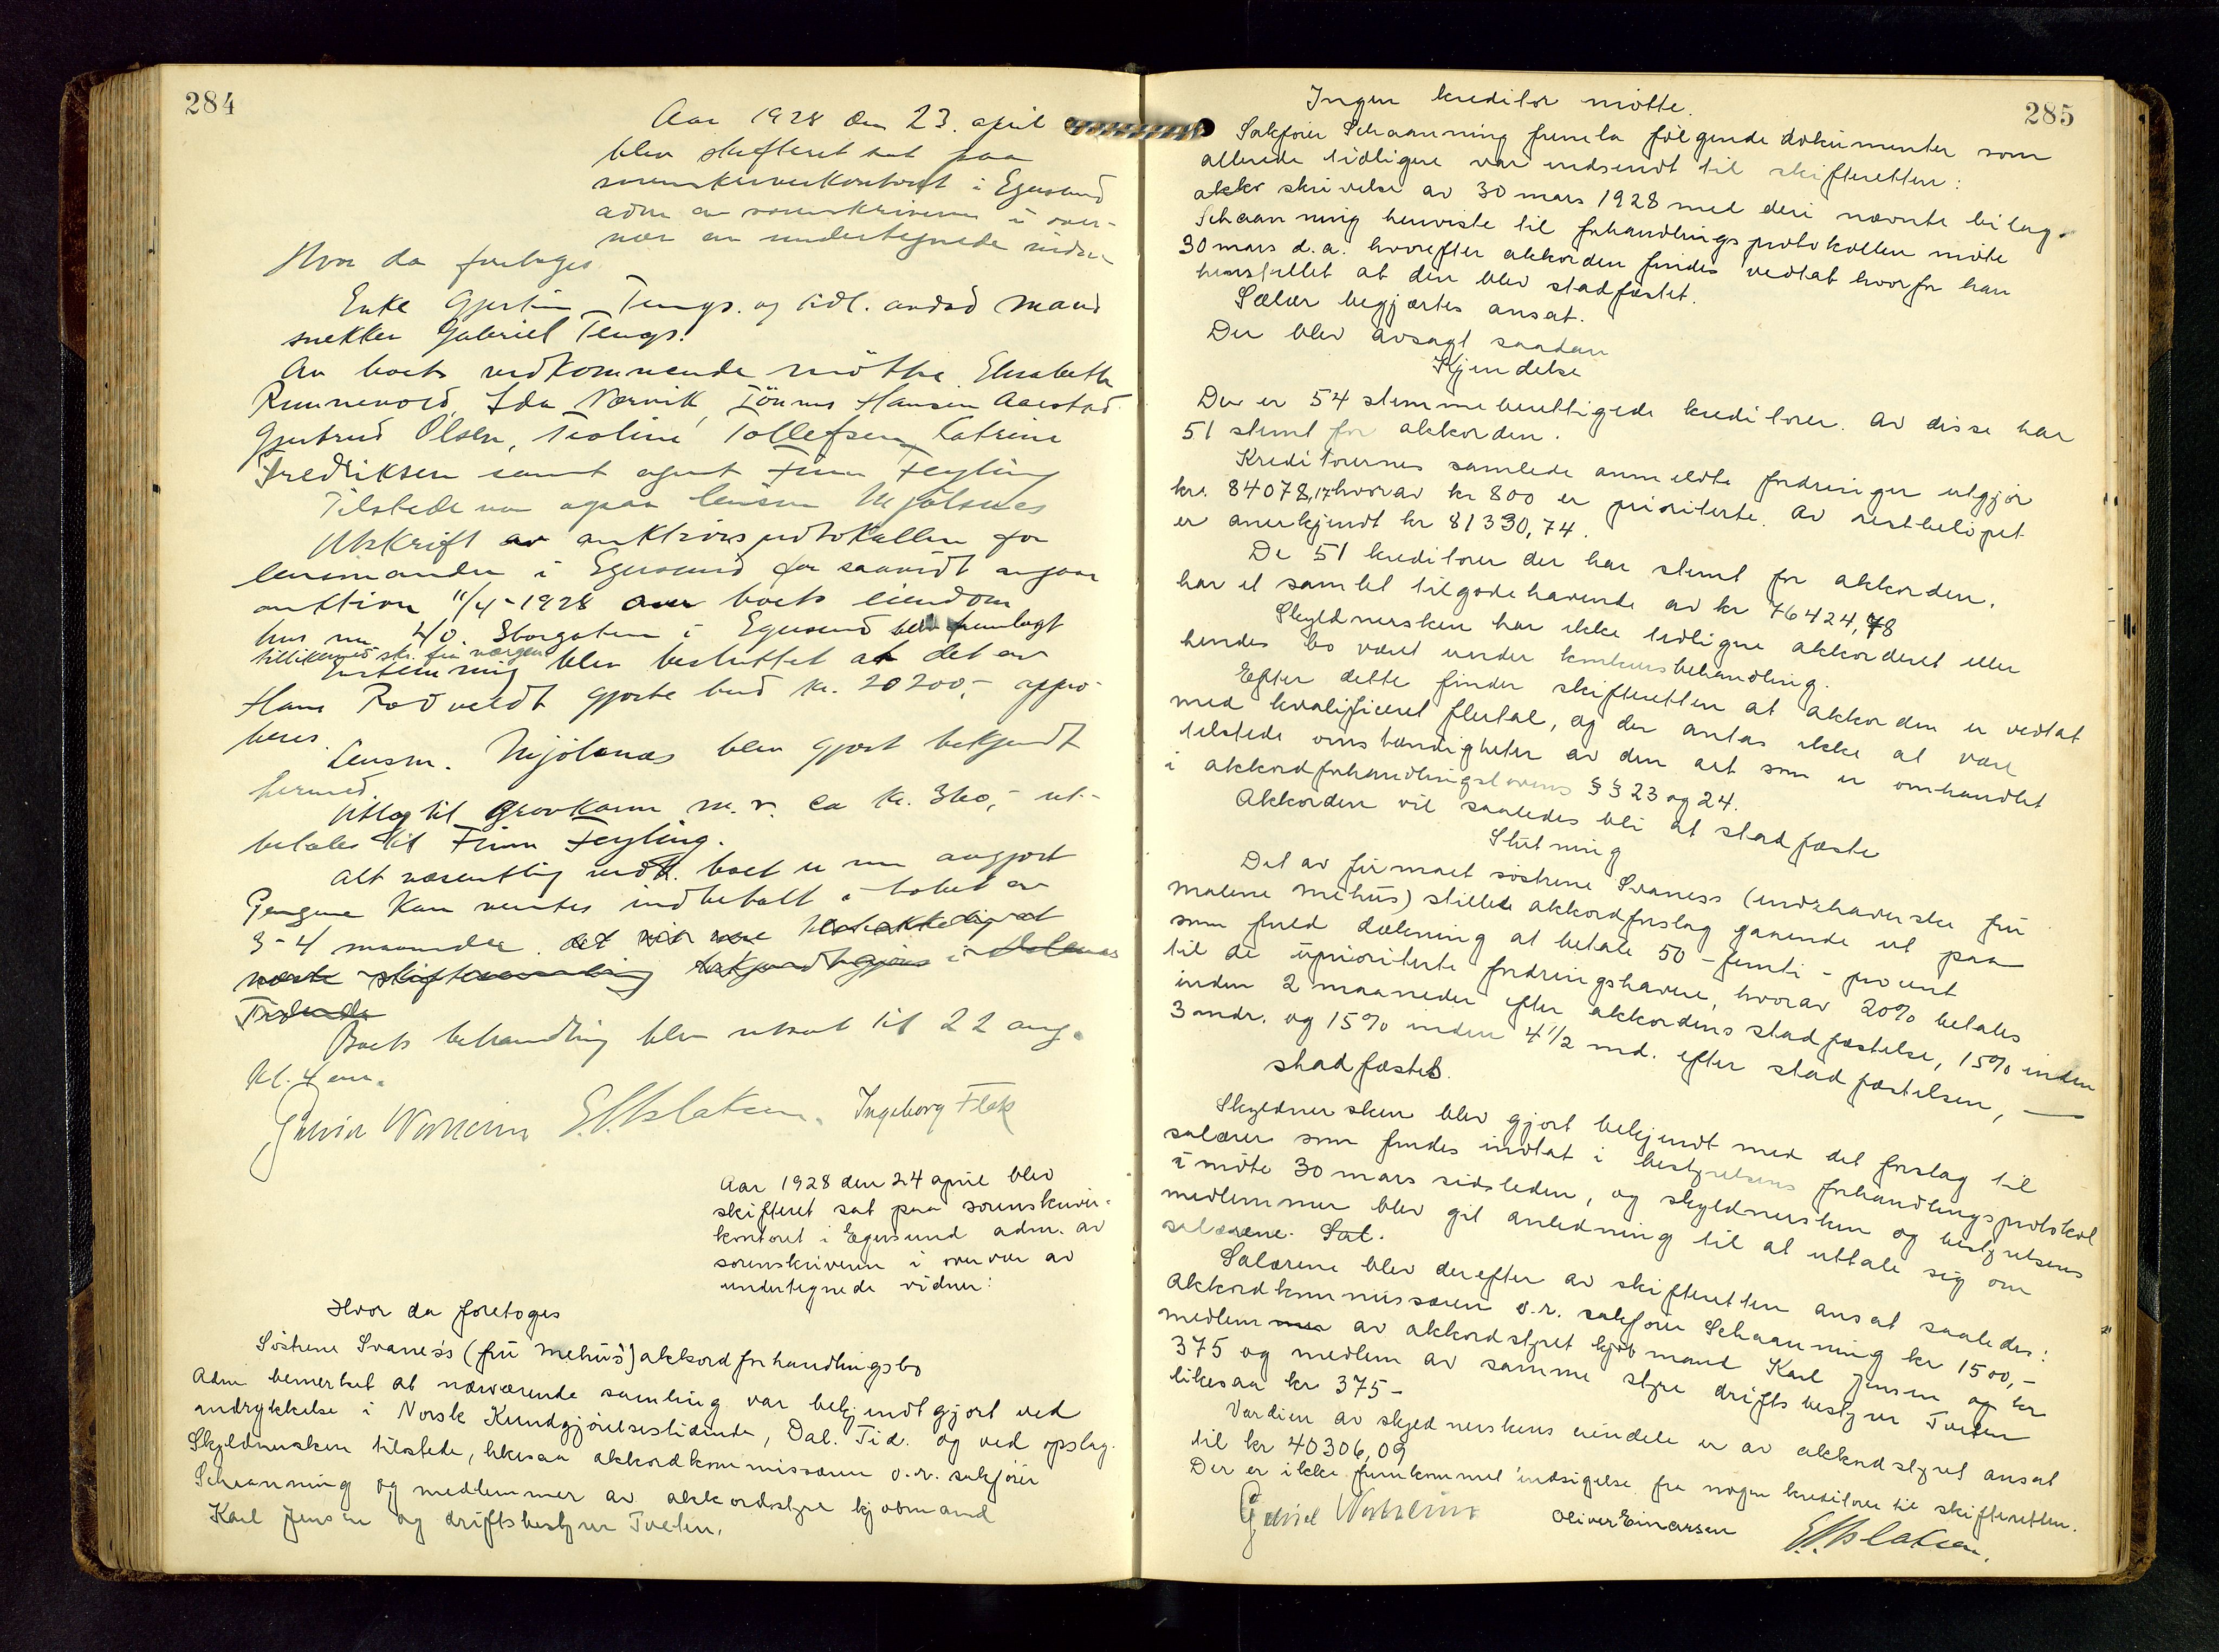 284
Aar 1928 den 23. april
blev skifteret sat paa
sorenskriverkontoret i Egersund
adm av sorenskriveren i over-
vær av undertegnede vidner
Hvor da foretoges
Enke Gjertine Tengs. og tidl. avdød mand
snekker Gabriel Tengs.
Av boets vedkommende møtte Elisabeth
Runnevold, Ida Nærvik, Tönnes Hansen Aarstad
Gjertrud Olsen, Teoline Tollefsen, Catrine
Fredriksen samt agent Finn Feyling
Tilstede var ogsaa lensm Mjölsnes
Utskrift av auktionsprotokollen for
lensmanden i Egersund for saavidt angaar
auktion 11/4-1928 over boets eiendom
hus nr 40. Storgaten i Egersund blev fremlagt
tillikemed skr. fra værgen
Enstemmig blev besluttet at det av
Hans Rodvelt gjorte bud kr. 20200,- appro-
beres.
Lensm. Mjölsnes blev gjort bekjendt
hermed.
Utlæg til Gravkarm m.v. ca kr. 360,- ut-
betales til Finn Feyling.
Alt væsentlig vedk. boet er nu avgjort
Pengene kan ventes indbetalt i löbet av
3-4 maaneder. det
næste skiftesamling bekjendtgjøres i Dalernes
Tidende
Boets behandling blev utsat til 22 aug.
kl. 4 em.
Ingeborg Flek
Aar 1928 den 24 april blev
skifteret sat paa sorenskriver-
kontoret i Egersund adm. av
sorenskriveren i overvær av
undertegnede vidner:
Hvor da foretoges
Söstrene Svaness (frü Mehüs) akkordforhandlingsbo
Adm bemerket at nærværende samling var bekjendtgjort ved
indrykkelse i Norsk Kundgjörelsestidende, Dal. Tid. og ved opslag.
Skyldnersken tilstede, likesaa akkordkommissæren o.r. sakförer
Schaanning og medlemmer av akkordstyre kjøbmand
Karl Jensen og driftsbestyrer Tveten.
285
Ingen kreditor mötte.
Sakförer Schaanning fremla fölgende dokümenter som
allerede tidligere var indsendt til skifteretten:
akks skrivelse av 30 mars 1928 med deri nævnte bilag.
Schaanning henviste til forhandlingsprotokollen möte
30 mars d.a. hvorefter akkorden findes vedtat hvorfor han
henstillet at den blev stadfæstet.
Salær begjærtes ansat.
Der blev avsagt saadan
Kjendelse
Der er 54 stemmeberettigede kreditorer. Av disse har
51 stemt for akkorden.
Kreditorernes samlede anmeldte fordringer utgjör
kr. 84078,17 hvorav kr 800 er prioriterte. Av restbelöpet
er anerkjendt kr 81330,74.
De 51 kreditorer der har stemt for akkorden,
har et samlet tilgodehavende av kr 76424,78
Skyldnersken har ikke tidligere akkorderet eller
hendes bo været under konkursbehandling.
Efter dette finder skifteretten at akkorden er vedtat
med kvalificeret flertal, og der antas ikke at være
tilstede omstændigheter av den art som er omhandlet
i akkordforhandlingslovens §§ 23 og 24.
Akkorden vil saaledes bli at stadfæste
Slutning
Det av firmaet söstrene Svaness (indehaverske frü
Malene Mehüs) stillede akkordforslag gaaende ut paa
som fuld dækning at betale 50 - femti - procent
til de üprioriterte fordringshavere, hvorav 20% betales
inden 2 maaneder efter akkordens stadfæstelse, 15% inden
3 mdr. og 15% inden 4 1/2 md. efter stadfæstelsen, —
stadfæstes.
Skyldnersken blev gjort bekjendt med det forslag til
salærer som findes indtat i bestyrelsens forhandlingsprotokol
i möte 30 mars sidsleden, og skyldnersken og bestyrelsens
medlemmer blev git anledning til at uttale sig om
salærene. Sal.
Salærene blev derefter av skifteretten ansat saaledes:
Akkordkommissæren o.r. sakförer Schaanning kr 1500,-
medlemmer av akkordstyret kjøbmand Karl Jensen og kr
375 og medlem av samme styre driftsbestyrer Tveten
likesaa kr 375-
Værdien av skyldnerskens eiendele er av akkordstyret ansat
til kr 40306,09
Der er ikke fremkommet indsigelse fra nogen kreditorer til skifteretten.
Oliver Einarsen